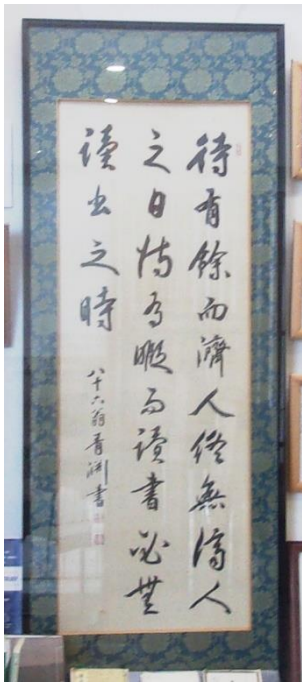 待有餘而濟人終無濟人
之日待有暇而讀書必無
讀書之時
八十六翁青淵書